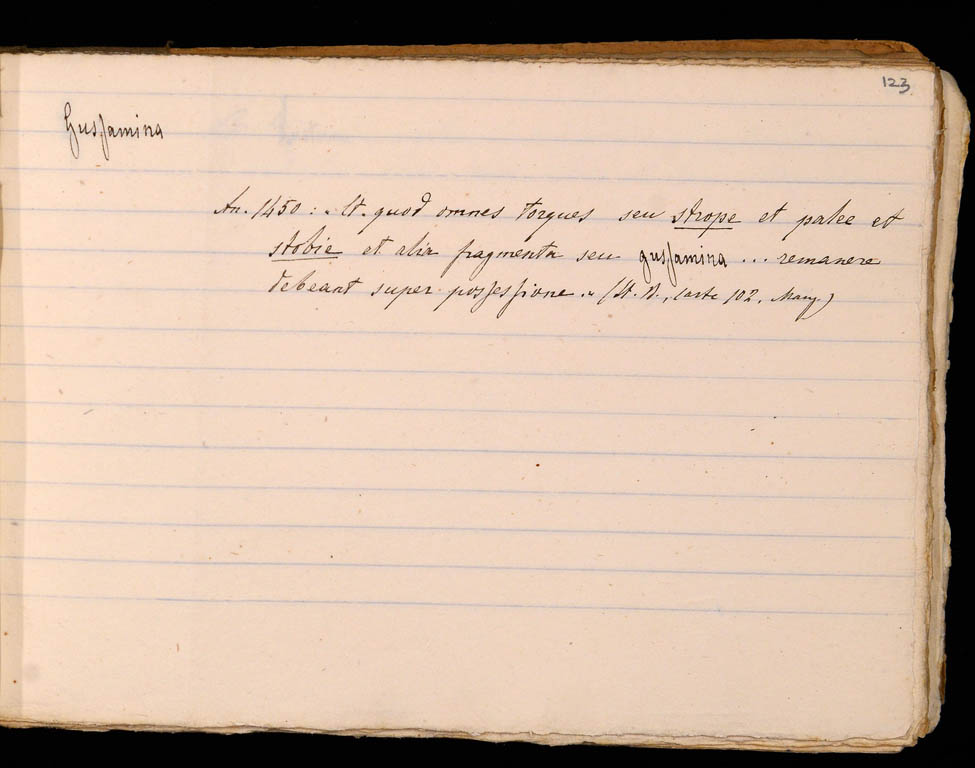 123
Gusſamina
An. 1450: « It. quod omnes torques seu strope et palee et
stobie et alia fragmenta seu gusſamina ... remanere
debeant super posſesſione. » (St. A., carte 102, Marg.)